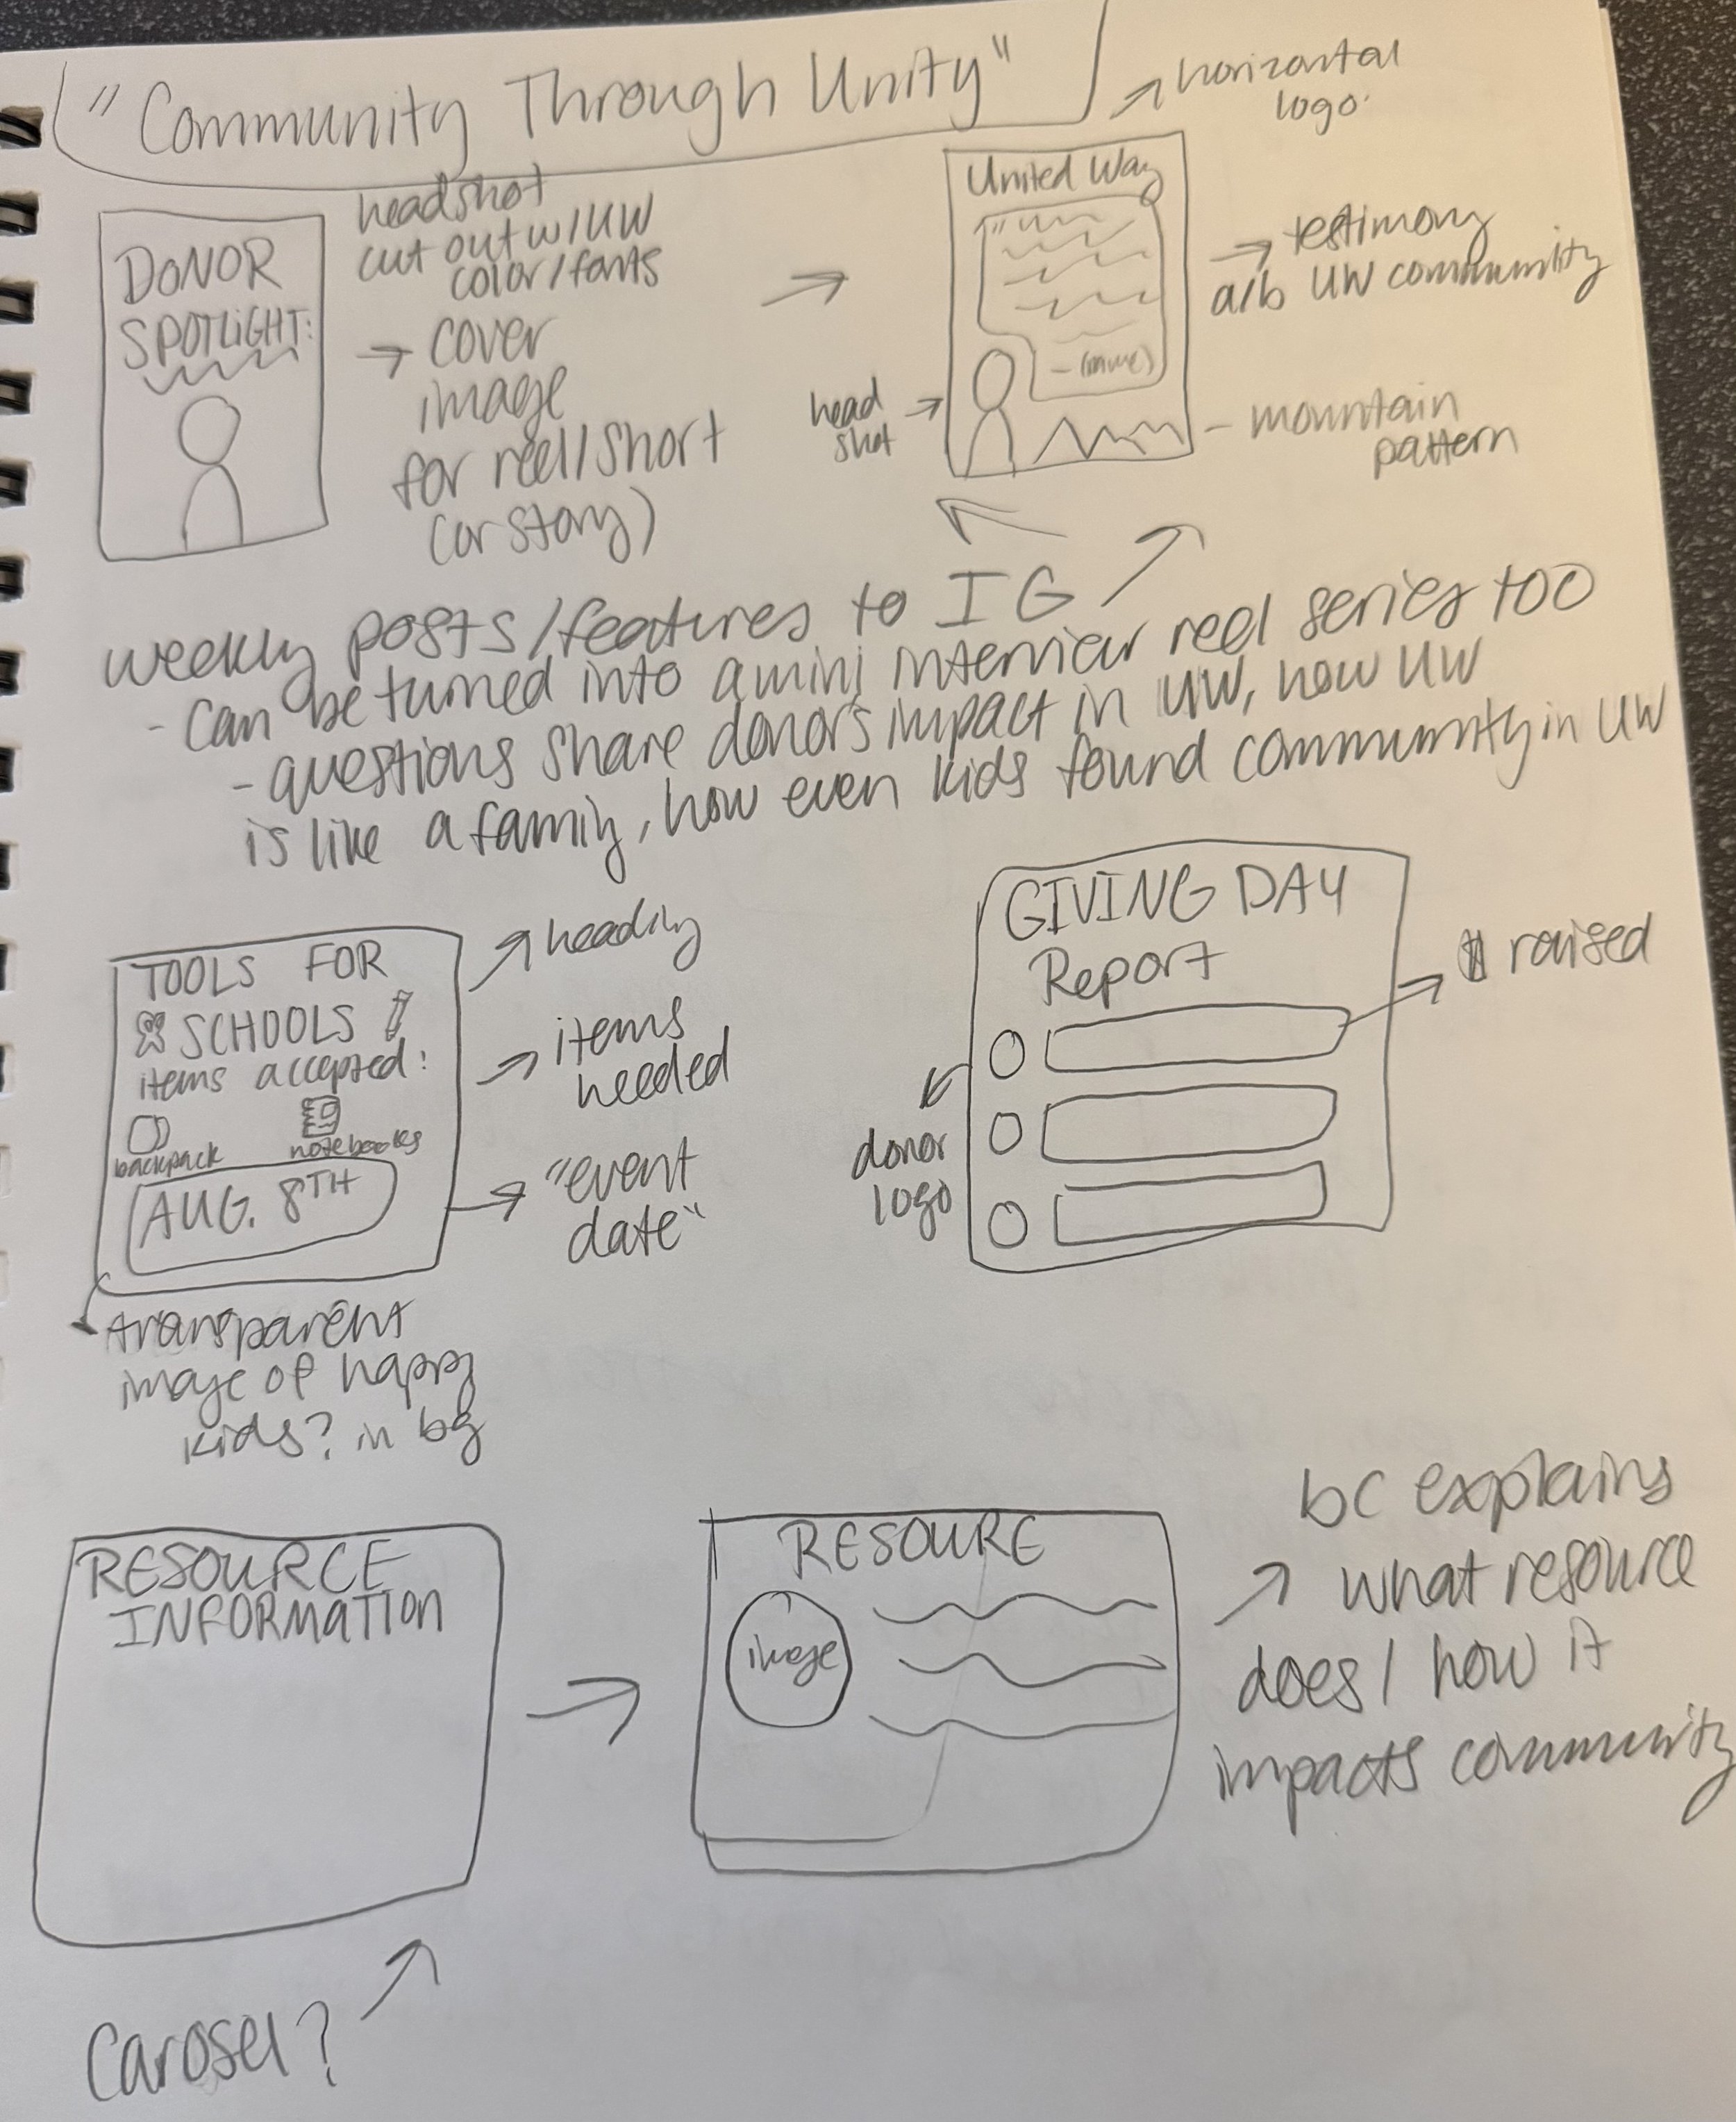 "Community Through Unity"
horizontal
logo
DONOR
SPOTLIGHT:
headshot
cut out w/UW
color/fonts
→ cover
image
for reel/short
(or story)
→
United Way
"
- (name)
→ testimony
a/b UW community
head
shot →
- mountain
pattern
weekly posts/features to IG
- can be turned into a mini interview reel series too
- questions share donors impact in UW, how UW
is like a family, how even kids found community in UW
TOOLS FOR
SCHOOLS
items accepted:
backpack
notebooks
AUG. 8TH
heading
items
needed
→ "event
date"
transparent
image of happy
kids? in bg
GIVING DAY
Report
$ raised
donor
logo
RESOURCE
INFORMATION
→
RESOURE
image
bc explains
what resource
does / how it
impacts community
Carosel?